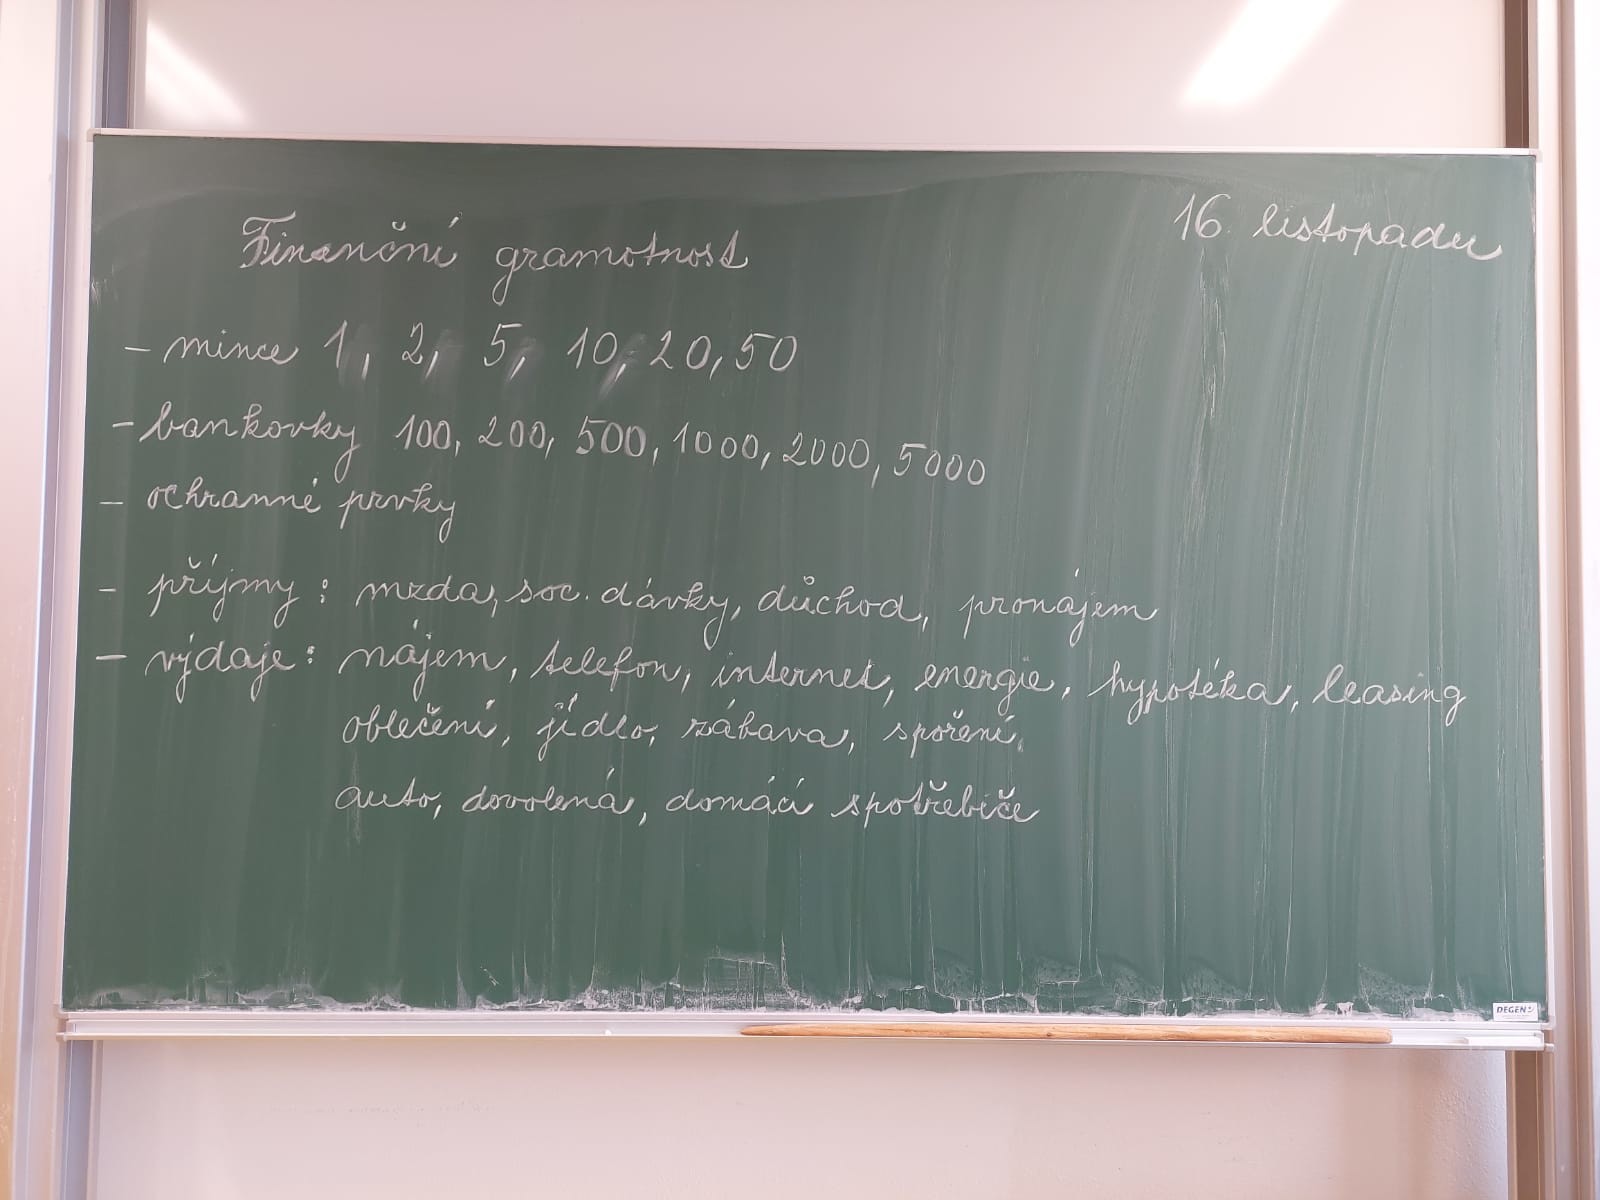 Finanční gramotnost
16. listopadu
- mince 1, 2, 5, 10, 20, 50
- bankovky 100, 200, 500, 1000, 2000, 5000
- ochranné prvky
- příjmy: mzda, soc. dávky, důchod, pronájem
- výdaje: nájem, telefon, internet, energie, hypotéka, leasing
oblečení, jídlo, zábava, spoření,
auto, dovolená, domácí spotřebiče
DEGEN